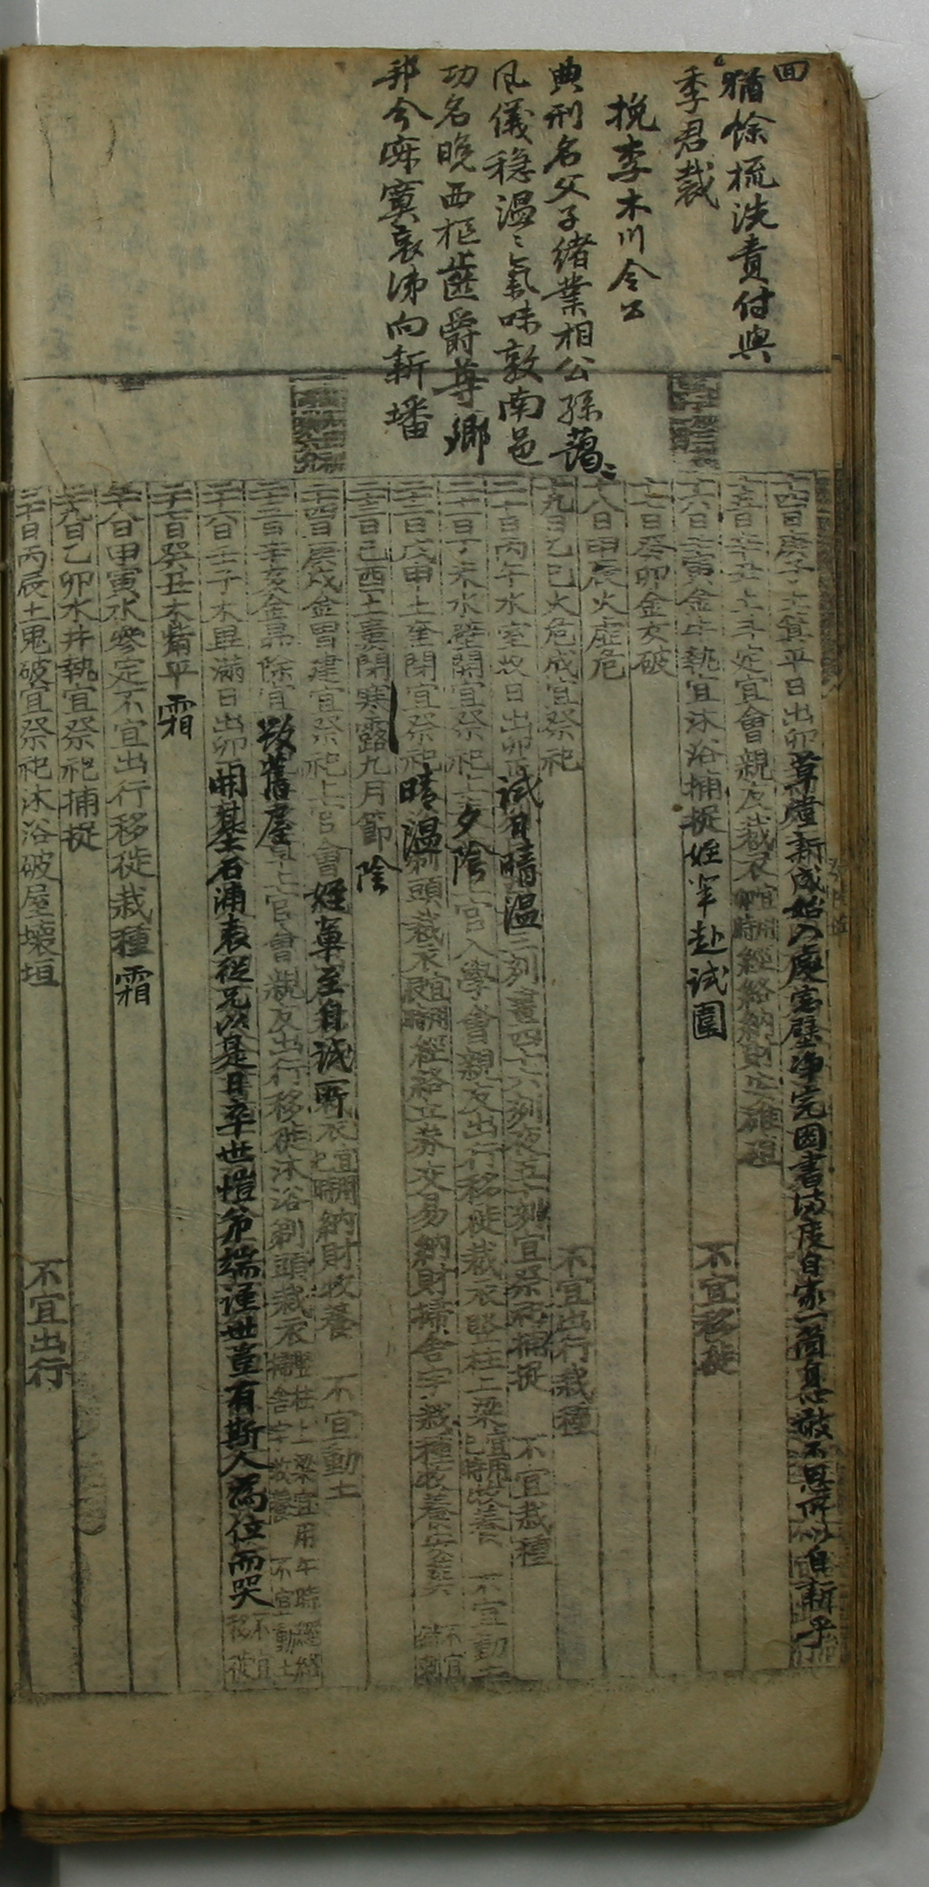 面
猶餘梳洗責付與
季君裁
挽李木川令公
典刑名父子緒業相公孫藹〻
風儀穩溫〻氣味敦南邑
功名晚西樞齒爵尊鄕
邦今寂寞哀涕向新墦
十四日庚子土箕平日出卯 尊燈新成始入處窓壁淨完圖書滿度自家一箇身心敢不思所以自新乎
十五日辛丑土斗定宜會親友裁衣經絡納財安碓磑
十六日壬寅金牛執宜沐浴捕捉 姪輩赴試圍 不宜移徙
十七日癸卯金女破
十八日甲辰火虛危
十九日乙巳火危成宜祭祀 不宜出行栽種
二十日丙午水室收日出卯 試日晴溫 三刻晝四十六刻夜五十刻宜祭祀捕捉 不宜栽種
二十一日丁未水壁開宜祭祀上 夕陰 官入學會親友出行移徙裁衣竪柱上梁宜用 時牧養 不宜動土
二十二日戊申土奎閉宜祭祀 晴溫 剃頭裁衣宜用 時經絡立券交易納財掃舍宇栽種牧養安葬 不宜
二十三日己酉土婁閉寒露九月節 陰
二十四日庚戌金胃建宜祭祀上官會 姪輩至自試所 裁衣宜用 時納財牧養 不宜動土
二十五日辛亥金昴除宜 毁舊屋 上官會親友出行移徙沐浴剃頭裁衣竪柱上梁宜用午時經絡掃舍宇牧養 不宜動土
二十六日壬子木畢滿日出卯 開基石浦表從兄以是日卒世愷爷端謹世豈有斯人爲位而哭 不宜移徙
二十七日癸丑木觜平 霜
二十八日甲寅水參定不宜出行移徙栽種 霜
二十九日乙卯水井執宜祭祀捕捉
三十日丙辰土鬼破宜祭祀沐浴破屋壞垣 不宜出行